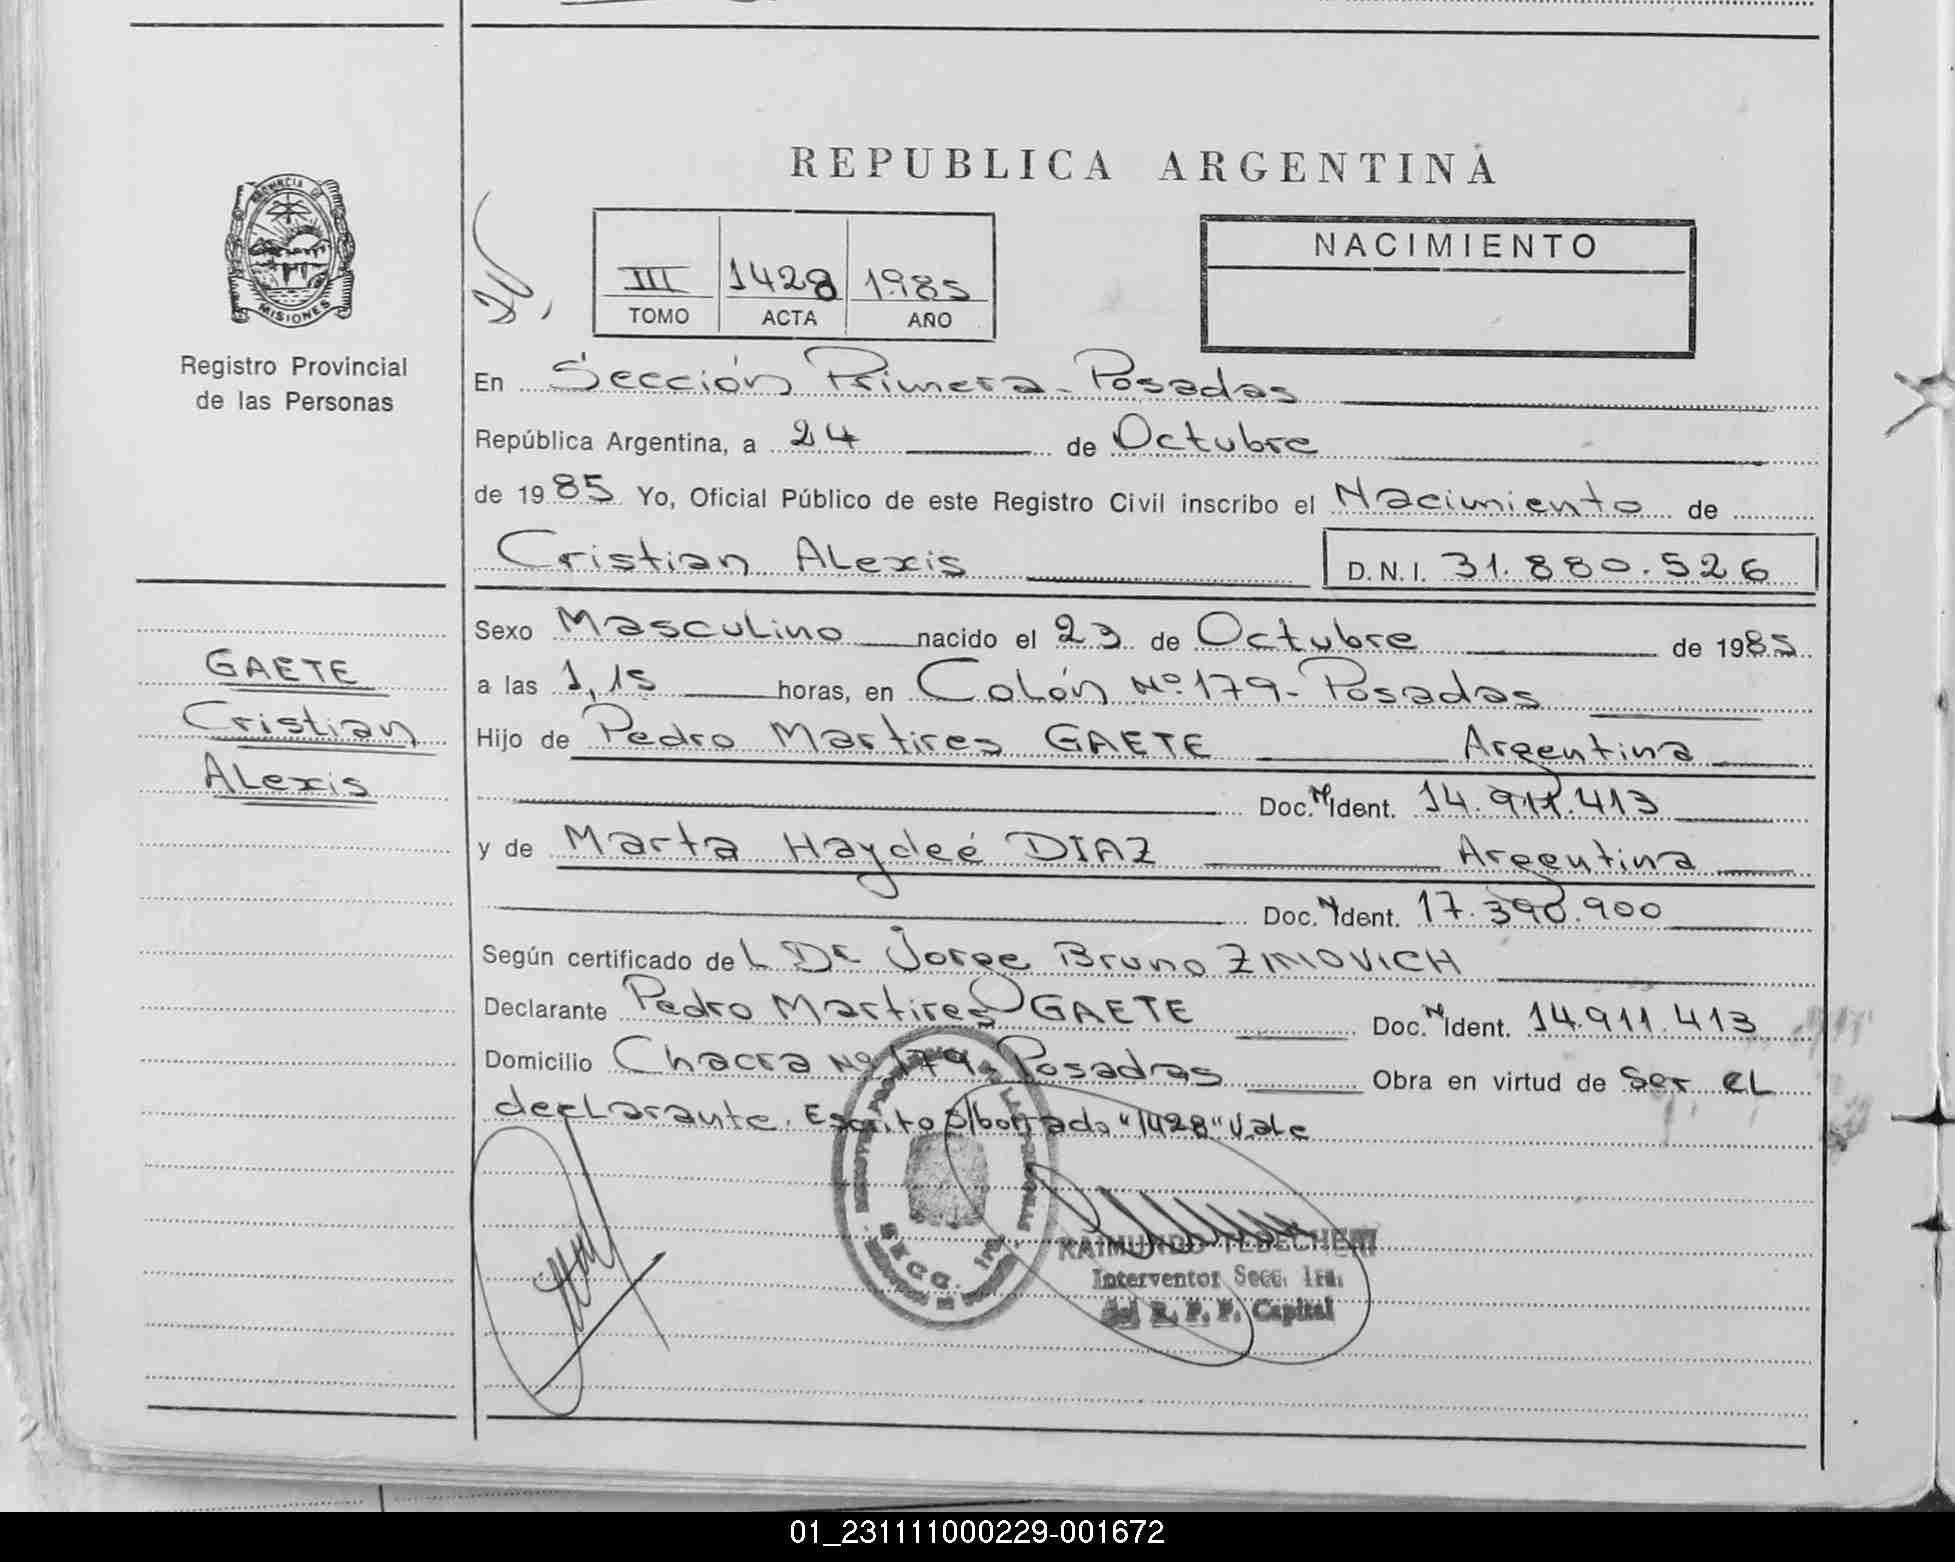 REPUBLICA ARGENTINA
PROVINCIA DE
MISIONES
Registro Provincial
de las Personas
III 1428 1985
TOMO ACTA AÑO
NACIMIENTO
En Sección Primera - Posadas
República Argentina, a 24 de Octubre
de 1985 Yo, Oficial Público de este Registro Civil inscribo el Nacimiento de
Cristian ALexis D.N.I. 31.880.526
GAETE
Cristian
ALexis
Sexo Masculino nacido el 23 de Octubre de 1985
a las 1,15 horas, en Colón Nº 179 - Posadas
Hijo de Pedro Martires GAETE Argentina
Doc. N Ident. 14.911.413
y de Marta Haydeé DIAZ Argentina
Doc. N Ident. 17.390.900
Según certificado de L Dr Jorge Bruno ZINOVICH
Declarante Pedro Martires GAETE Doc. N Ident. 14.911.413
Domicilio Chacra Nº 179 Posadas Obra en virtud de Ser eL
decLarante. Escrito s/borrado "1428" Vale
SECC. 1ra.
RAIMUNDO
Interventor Secc. 1ra.
del R. P. P. Capital
01_231111000229-001672